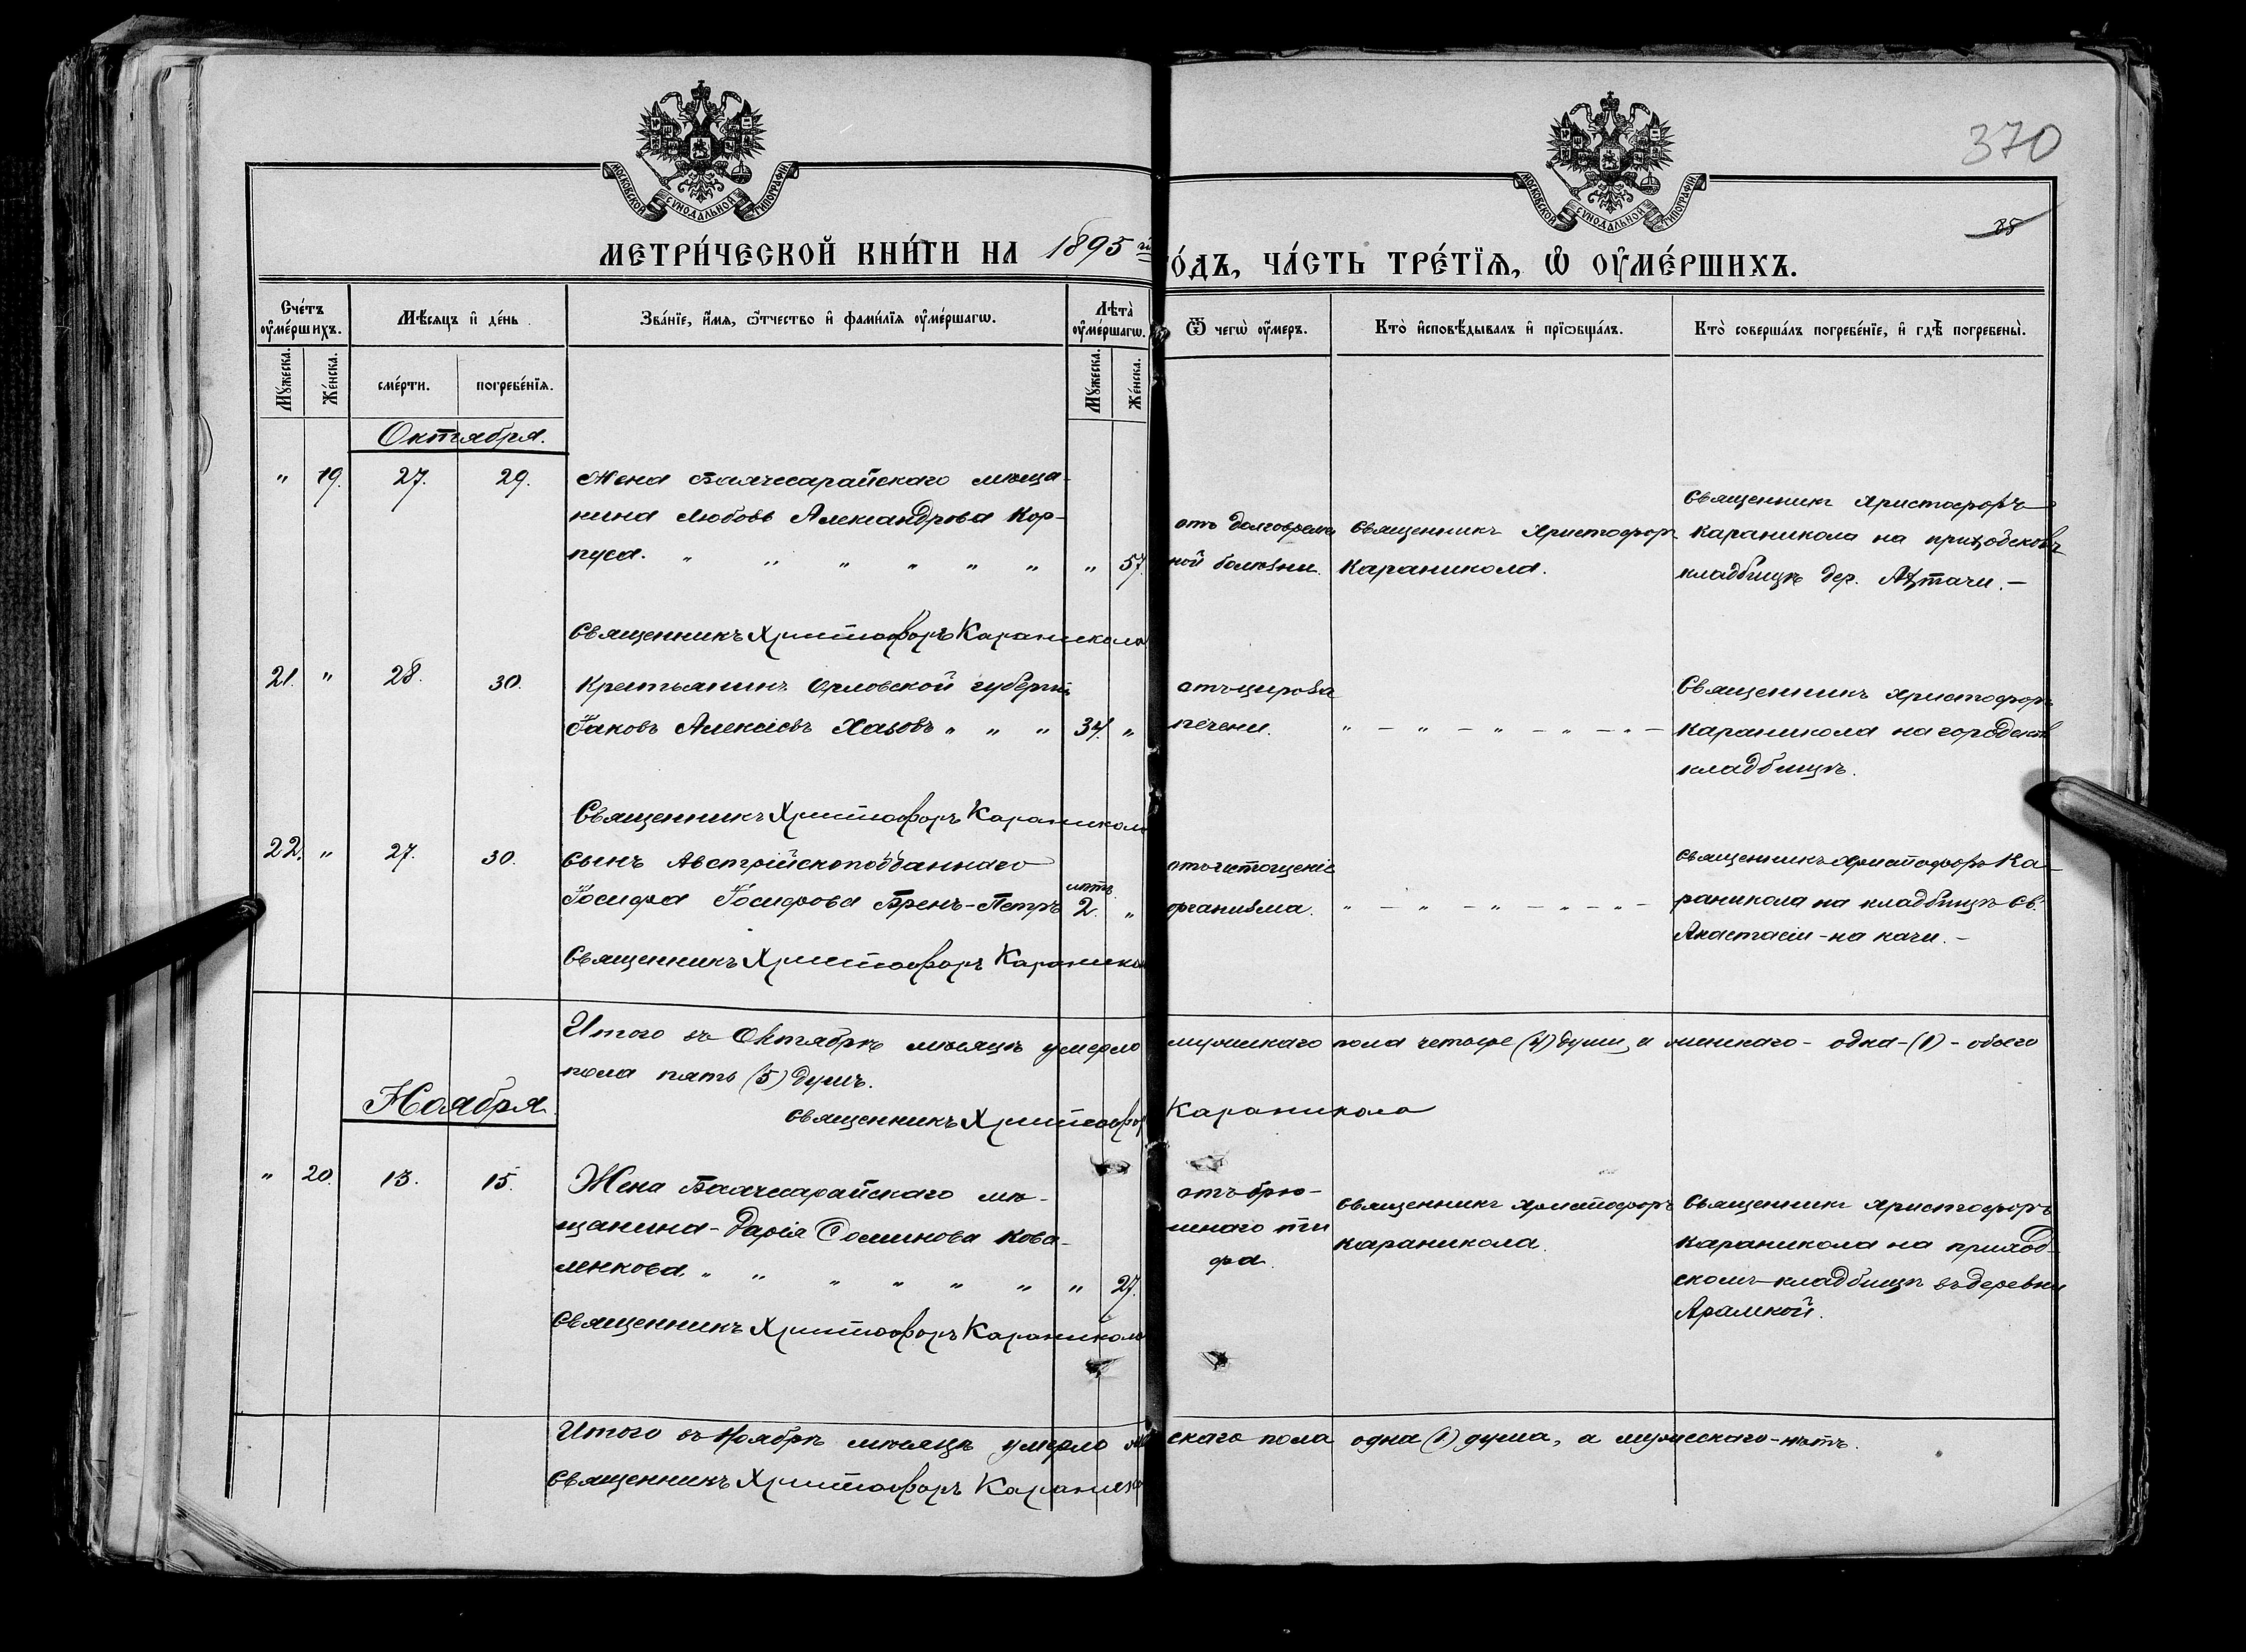 МОСКОВСКОЙ СѴНОДАЛЬНОЙ ТИПОГРАФІИ
МОСКОВСКОЙ СѴНОДАЛЬНОЙ ТИПОГРАФІИ
370
85
МЕТРИ́ЧЕСКОЙ КНИ́ГИ НА 1895 й
го́дъ, ЧА́СТЬ ТРЕ́ТІѦ, Ѡ҆ ОУ҆МЕ́РШИХЪ.
Сче́тъ оу҆ме́ршихъ.
Мѣ́сяцъ и҆ де́нь.
Зва́нїе, и҆́мя, ѻ҆́тчество и҆ фами́лїя оу҆ме́ршагѡ.
Лѣта̀ оу҆ме́ршагѡ.
Ѿ чегѡ̀ оу҆́меръ.
Кто̀ и҆сповѣ́дывалъ и҆ прїѡбща́лъ.
Кто̀ соверша́лъ погребе́нїе, и҆ гдѣ̀ погребены̀.
Мꙋ́жеска.
Же́нска.
сме́рти.
погребе́нїя.
Мꙋ́жеска.
Же́нска.
Октября.
" 19. 27. 29.
Жена Бахчесарайскаго мѣща-
нина Любовь Александрова Кор-
пуса. " " " " " " " 57.
отъ долговремен
ной болѣзни.
Священникъ Христофоръ
Караникола.
Священникъ Христофоръ
Караникола на приходскомъ
кладбищѣ дер. Ахтачи. –
Священникъ Христофоръ Караникола
21. " 28. 30.
Крестьянинъ Орловской губерніи
Іаковъ Алексіевъ Хазовъ " " " 34. "
отъ цироза
печени.
" – " – " – " – " –
Священникъ Христофоръ
Караникола на городском
кладбищѣ.
Священникъ Христофоръ Караникола
22. " 27. 30.
Сынъ Австрійскоподданнаго
Іосифа Іосифова Бренъ-Петръ лѣтъ 2. "
отъ истощенія
организма.
" – " – " – " – " –
Священникъ Христофоръ Ка-
раникола на кладбищѣ Св.
Анастасіи - на качи. –
Священникъ Христофоръ Караникола
Итого въ Октябрѣ мѣсяцѣ умерло мужескаго пола четыре (4) души, а женскаго - одна - (1) - обоего
пола пять (5) душъ.
Священникъ Христофоръ Караникола
Ноября
" 20. 13. 15.
Жена Бахчесарайскаго мѣ-
щанина - Дарія Сошинова Кова-
ленкова. " " " " " " " 27.
отъ брю-
шнаго ти
фа.
Священникъ Христофоръ
Караникола.
Священникъ Христофоръ
Караникола на приход-
скомъ кладбищѣ въ деревни
Аранкой.
Священникъ Христофоръ Караникола
Итого въ Ноябрѣ мѣсяцѣ умерло женскаго пола одна (1) душа, а мужескаго - нѣтъ.
Священникъ Христофоръ Караникола